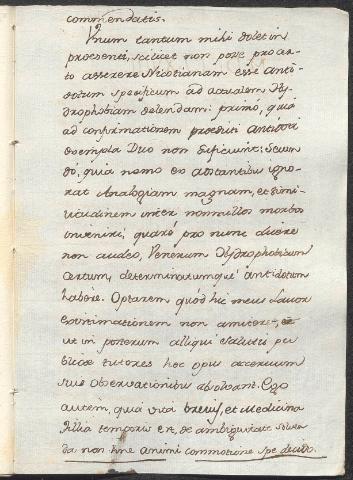 commendatis.
Unum tantum mihi dolet in
praesenti, scilicet non posse pro cer-
to asserere Nicotianam esse anti-
dotum specificum ad actualem Hy-
drophobiam delendam: primó, quia
ad confirmationem praediti antidoti
exempla Duo non sufficiunt: secun-
dó, quia nemo ex adstantibus igno-
rat Analogiam magnam, et simi-
litudinem inter nonnullos morbos
inveniri, quaré pro nunc dicere
non audeo, Venenum Hydrophobicum
Certum, determinatumque antidotum
habére. Optarem quód hic meus Lavor
existimationem non amitteret,
ut in posterum alliqui salutis pu
blicae tutores hoc opus
suis observationibus absolvant. Ego
autem, quia vita brevis, et Medicina
fillia temporis est, de ambiguitate solven
da non sine animi commotione spe decido.